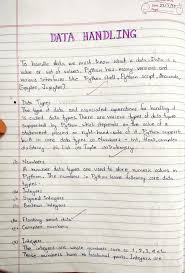 DATA HANDLING
To handle data we must know what is data. Data is a
value or set of values. Python has many versions and
various interfaces like Python shell, Python script, Anaconda,
Spyder, Jupyter)
Data Types
The type of data and associated operations for handling it
is called data types. There are various types of data
supported by Python which depends on the value of a
statement placed on right hand side of it. Python supports
built in core data types as Numbers - int, float, complex
String List Tuple Dictionary
(a) Numbers
A number data types are used to store numeric values in
Python. The numbers in Python have following core data
types:
Integers
Signed Integers
Boolean Integers
Floating point data
Complex numbers
(i) Integers
The integers are whole numbers such as 1, 2, 3, etc.
These numbers have no fractional parts. Integers are